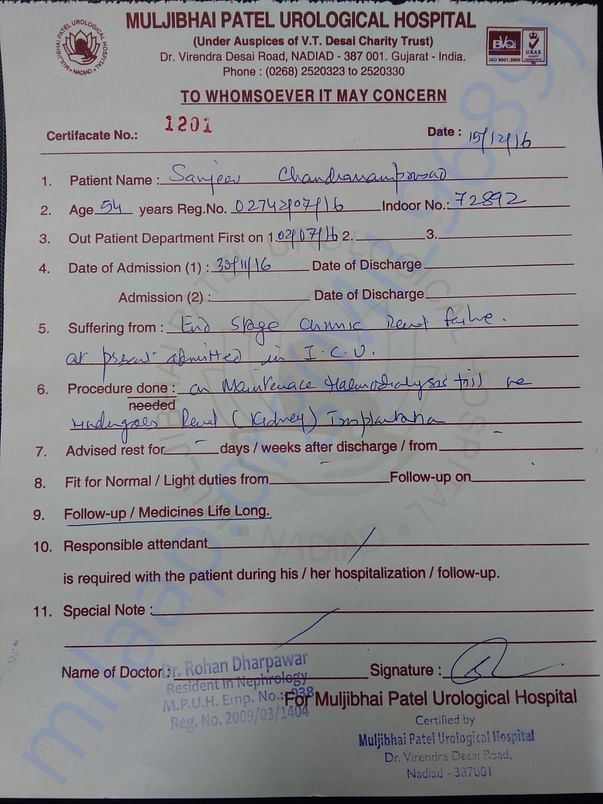 MULJIBHAI PATEL UROLOGICAL HOSPITAL
(Under Auspices of V.T. Desai Charity Trust)
Dr. Virendra Desai Road, NADIAD - 387 001. Gujarat - India.
Phone : (0268) 2520323 to 2520330
MULJIBHAI PATEL UROLOGICAL HOSPITAL
NADIAD
BVQI
ISO 9001:2000
UKAS
TO WHOMSOEVER IT MAY CONCERN
Certifacate No.: 1201 Date : 15/12/16
1. Patient Name : Sanjeev Chandramamprasad
2. Age 54 years Reg.No. 02742/07/16 Indoor No.: 72892
3. Out Patient Department First on 1. 02/07/16 2. 3.
4. Date of Admission (1) : 30/11/16 Date of Discharge
Admission (2) : Date of Discharge
5. Suffering from : End Stage Chronic Renal failure.
at present admitted in I.C.U.
6. Procedure done : on Maintenace Haemodialysis till he
needed
undergoes Renal (Kidney) Implantation
7. Advised rest for - days / weeks after discharge / from -
8. Fit for Normal / Light duties from - Follow-up on
9. Follow-up / Medicines Life Long.
10. Responsible attendant /
is required with the patient during his / her hospitalization / follow-up.
11. Special Note : /
Name of Doctor : Dr. Rohan Dharpawar Signature :
Resident In Nephrology
M.P.U.H. Emp. No.: 938
Reg. No. 2009/03/1404
For Muljibhai Patel Urological Hospital
Certified by
Muljibhai Patel Urological Hospital
Dr. Virendra Desai Road,
Nadiad - 387001